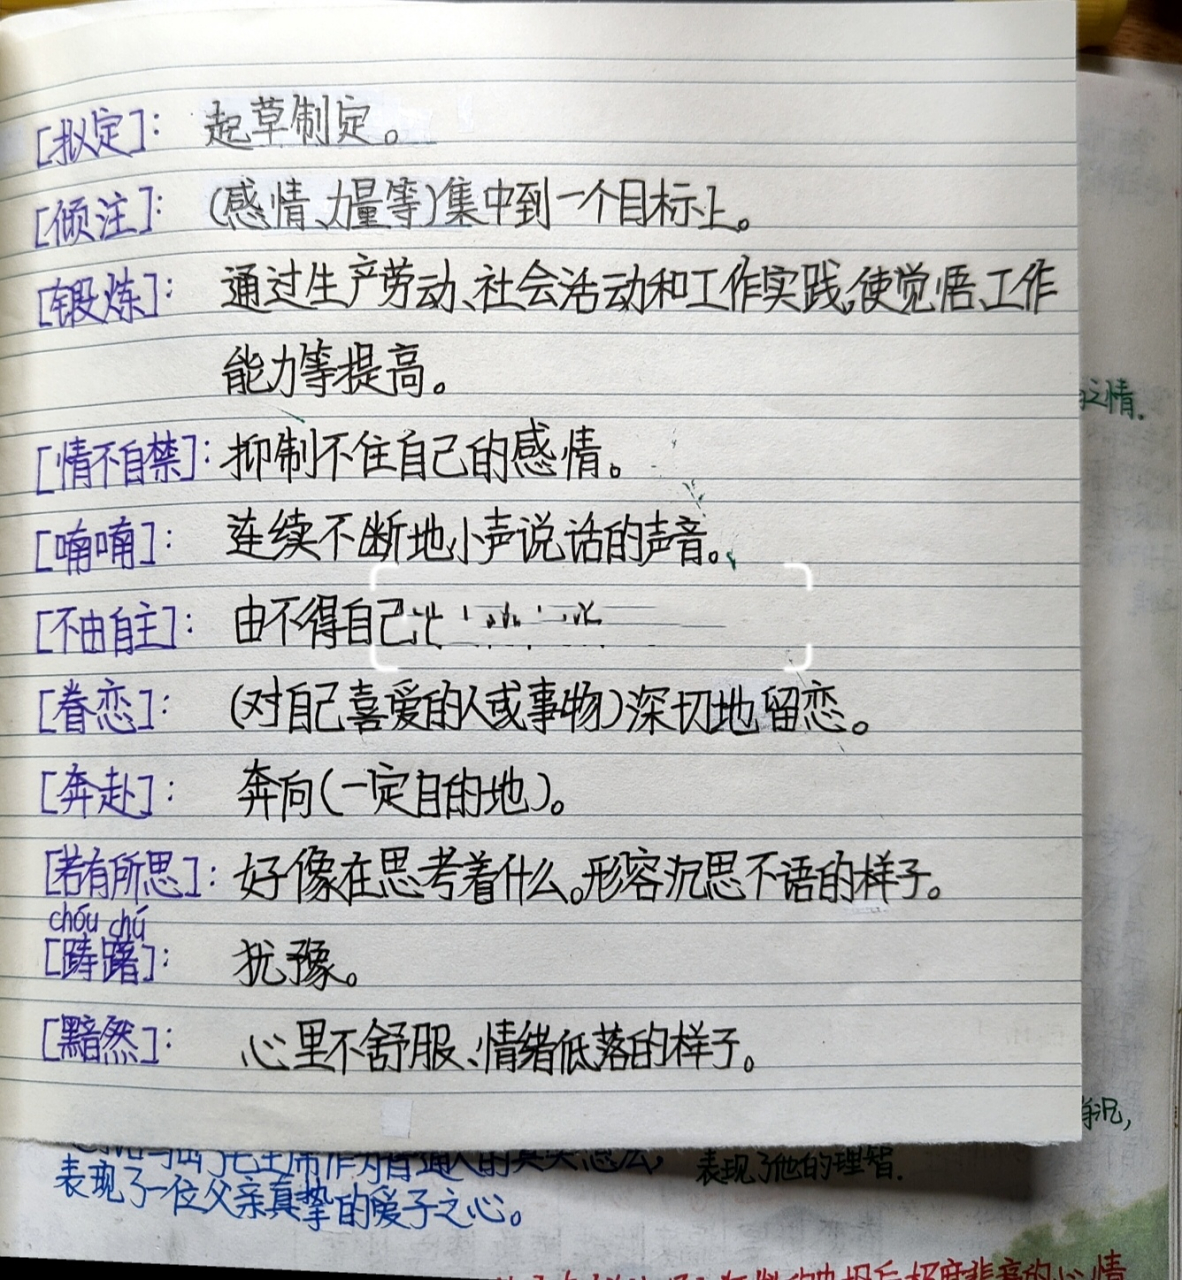 [拟定]： 起草制定。
[倾注]： (感情、力量等)集中到一个目标上。
[锻炼]： 通过生产劳动、社会活动和工作实践,使觉悟、工作
能力等提高。
之情.
[情不自禁]：抑制不住自己的感情。
[喃喃]： 连续不断地小声说话的声音。
[不由自主]： 由不得自己
[眷恋]： (对自己喜爱的人或事物)深切地留恋。
[奔赴]： 奔向(一定目的地)。
[若有所思]：好像在思考着什么。形容沉思不语的样子。
chóu chú
[踌躇]： 犹豫。
[黯然]： 心里不舒服、情绪低落的样子。
表现了他的理智.
表现了一位父亲真挚的爱子之心。